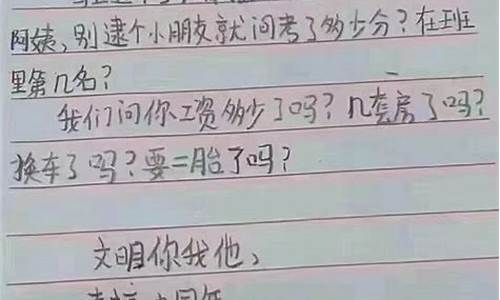 阿姨,别逮个小朋友就问考了多少分?在班
里第几名?
我们问你工资多少了吗?几套房了吗?
换车了吗?要二胎了吗?
文明你我他、